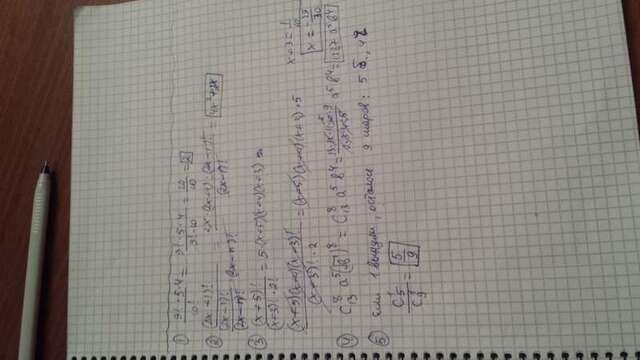 ① 9!·5·4 / 10! = 9!·5·4 / 9!·10 = 20/10 = 2
② (2x+1)! / (2x-1)! = 2x·(2x+1)·(2x-1)! / (2x-1)! = 4x²+2x
③ (x+5)! / (x+3)!·2! = 5·(x+5)(x+4)(x+3)
(x+5)(x+4)(x+3)! / (x+3)!·2 = (x+5)(x+4)(x+3)·5
x+3 = 1/10
x = -29/10
④ C⁸₁₃ a⁵(√b)⁸ = C⁸₁₃ a⁵b⁴ = a⁵b⁴ = 1287 a⁵b⁴
⑤ Если 1 вынули, осталось 9 шаров: 5 б., 4
C¹₅ / C¹₉ = 5/9